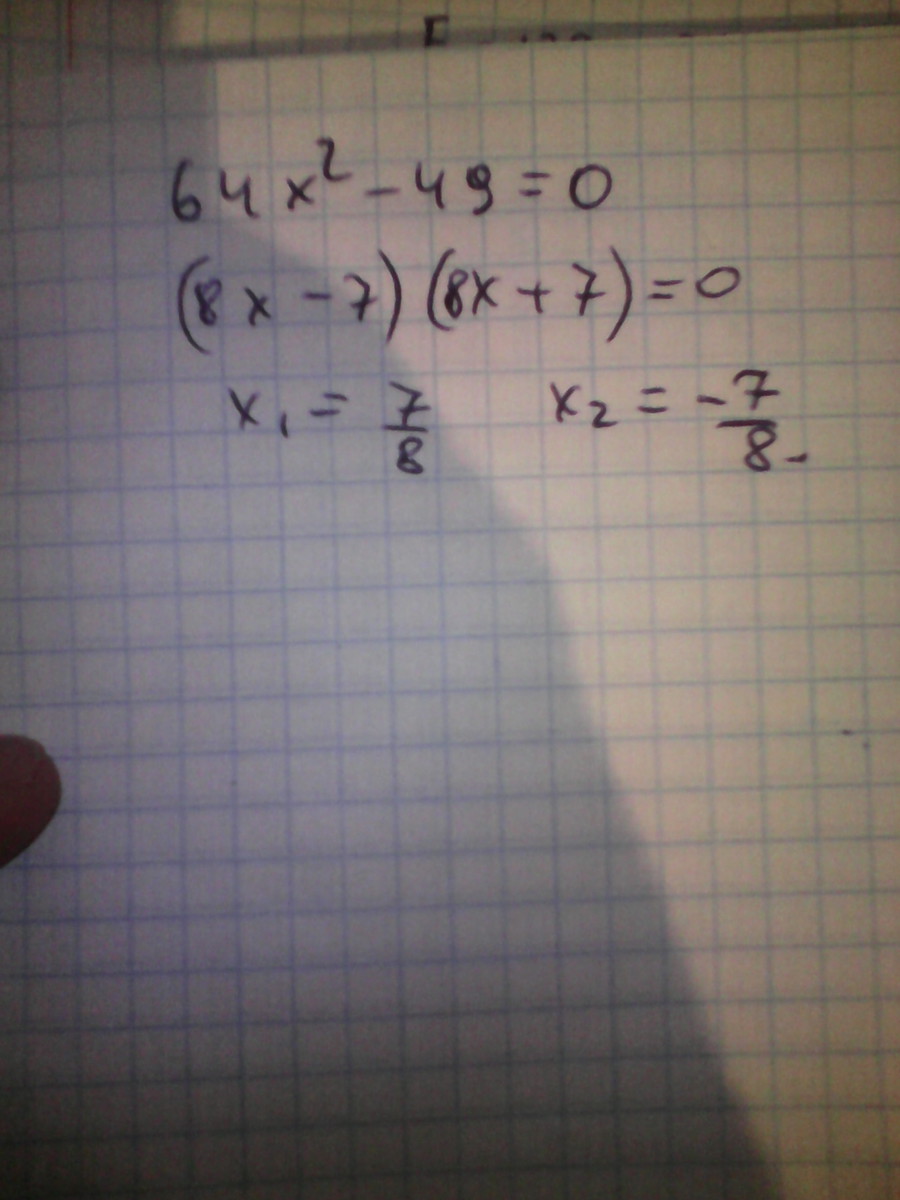 64x² - 49 = 0
(8x - 7) (8x + 7) = 0
x₁ = 7/8 x₂ = -7/8.